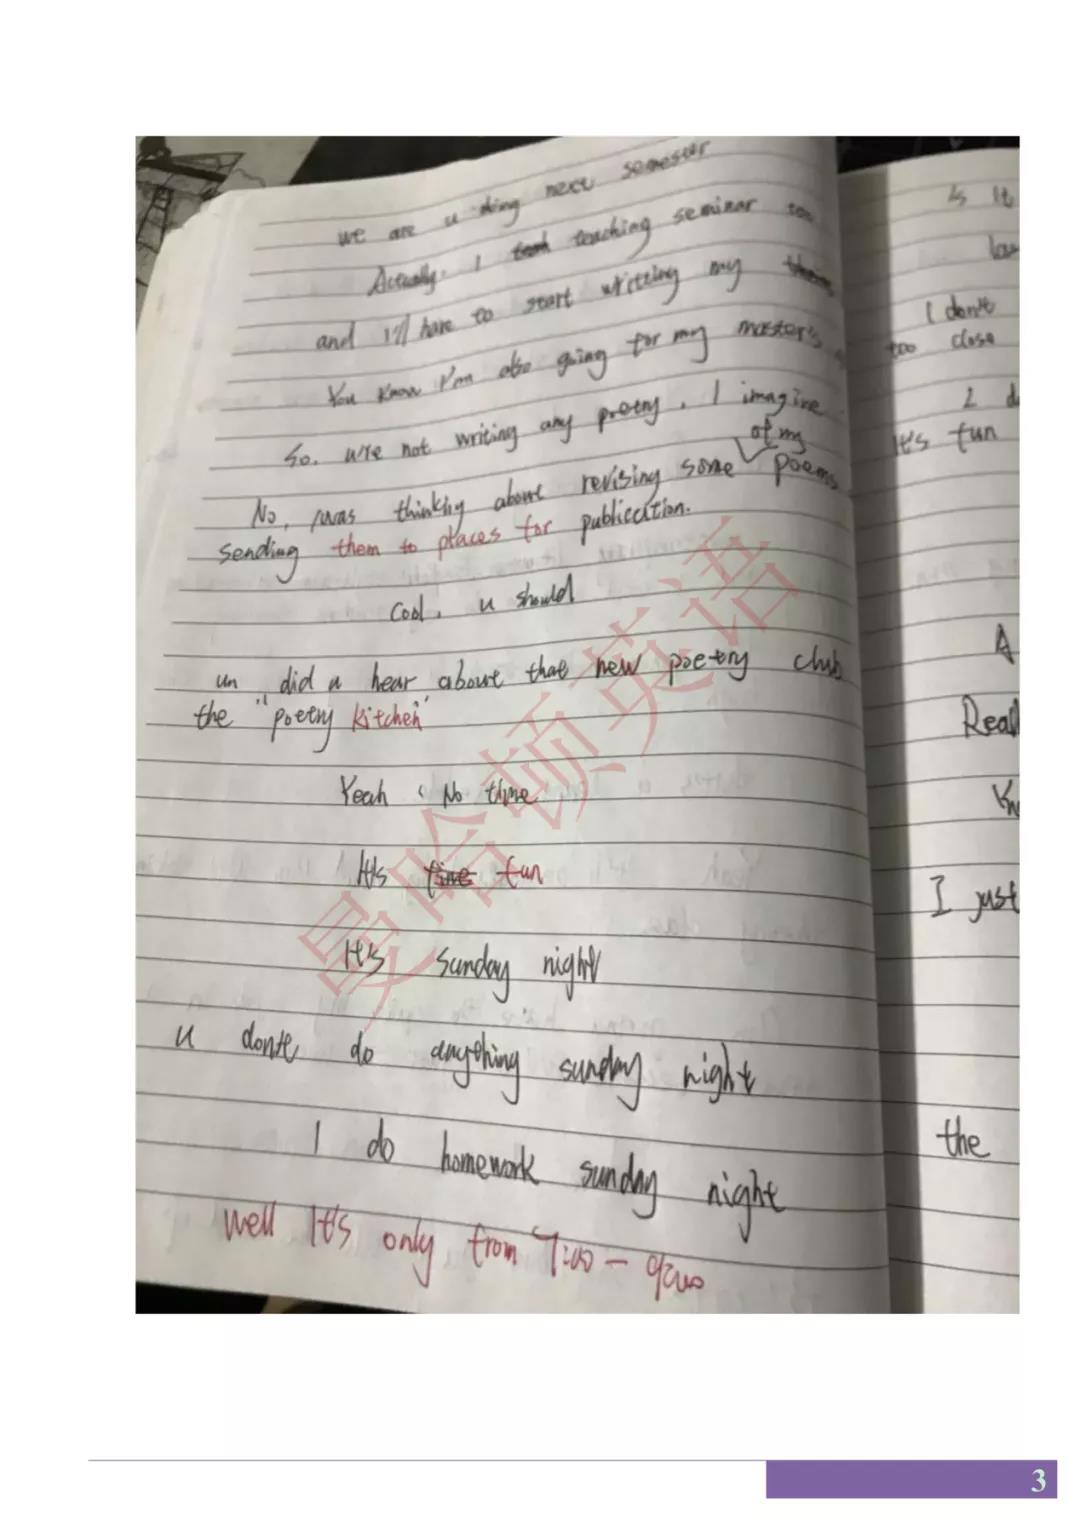 we are u doing next semester
Actually. I teaching seminar too
and I'll have to start writting my
You know I'm also going for my master's
So. u're not writing any poetry. I imagine
of my
No, was thinking about revising some poems
sending them to places for publication.
Cool. u should
un did u hear about that new poetry club
the "poetry kitchen"
Yeah No time
It's time fun
It's sunday night
u don't do anything sunday night
I do homework sunday night
Well It's only from 7:00 - 9:00
Is It
I don't
too close
I d
It's fun
A
Real
Kn
I just
the
曼哈顿英语
3